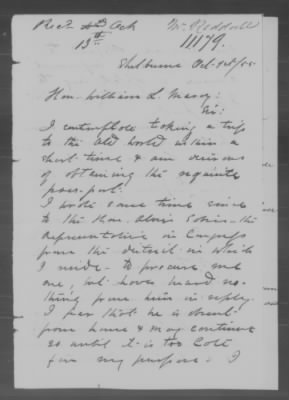 Rec'd & Ack
13th
Mr. Reddall
11179.
Shelburne Oct.
Hon. William L. Marcy:
Sir:
I contemplate taking a trip
to the old world within a
short time & am desirous
of obtaining the requisite
pass-port.
I wrote some time since
to the Hon. Alvah Sabin—the
Representative in Congress
from the district in which
I reside—to procure me
one, but have heard no-
thing from him in reply.
I fear that he is absent
from home & may continue
so until it is too late
for my purpose. I